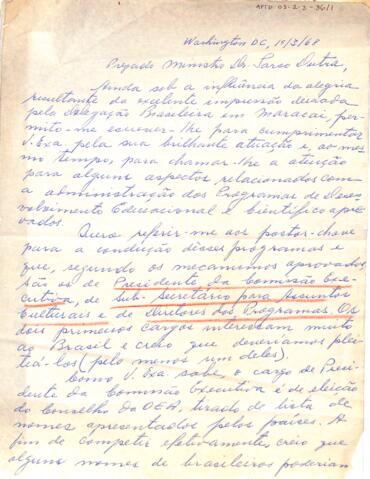 APTD 03-2-3-36/1
Washington DC, 19/3/68
Prezado Ministro Dr. Tarso Dutra,
Ainda sob a influência da alegria
resultante da excelente impressão deixada
pela Delegação Brasileira em Maracai, per-
mito-me escrever-lhe para cumprimentar
V. Exa pela sua brilhante atuação e, ao mes-
mo tempo, para chamar-lhe a atenção
para alguns aspectos relacionados com
a administração dos Programas de Desen-
volvimento Educacional e Científico apro-
vados.
Quero referir-me aos postos-chave
para a condução dêsses programas e
que, segundo os mecanismos aprovados,
são os de Presidente da Comissão Exe-
cutiva, de Sub-Secretário para Assuntos
Culturais e de Diretores dos Programas. Os
dois primeiros cargos interessam muito
ao Brasil e creio que deveríamos plei-
teá-los (pelo menos um deles).
Como V. Exa sabe, o cargo de Presi-
dente da Comissão Executiva é de eleição
do Conselho da OEA, tirado de lista de
nomes apresentados pelos países. A
fim de competir efetivamente, creio que
alguns nomes de brasileiros poderiam